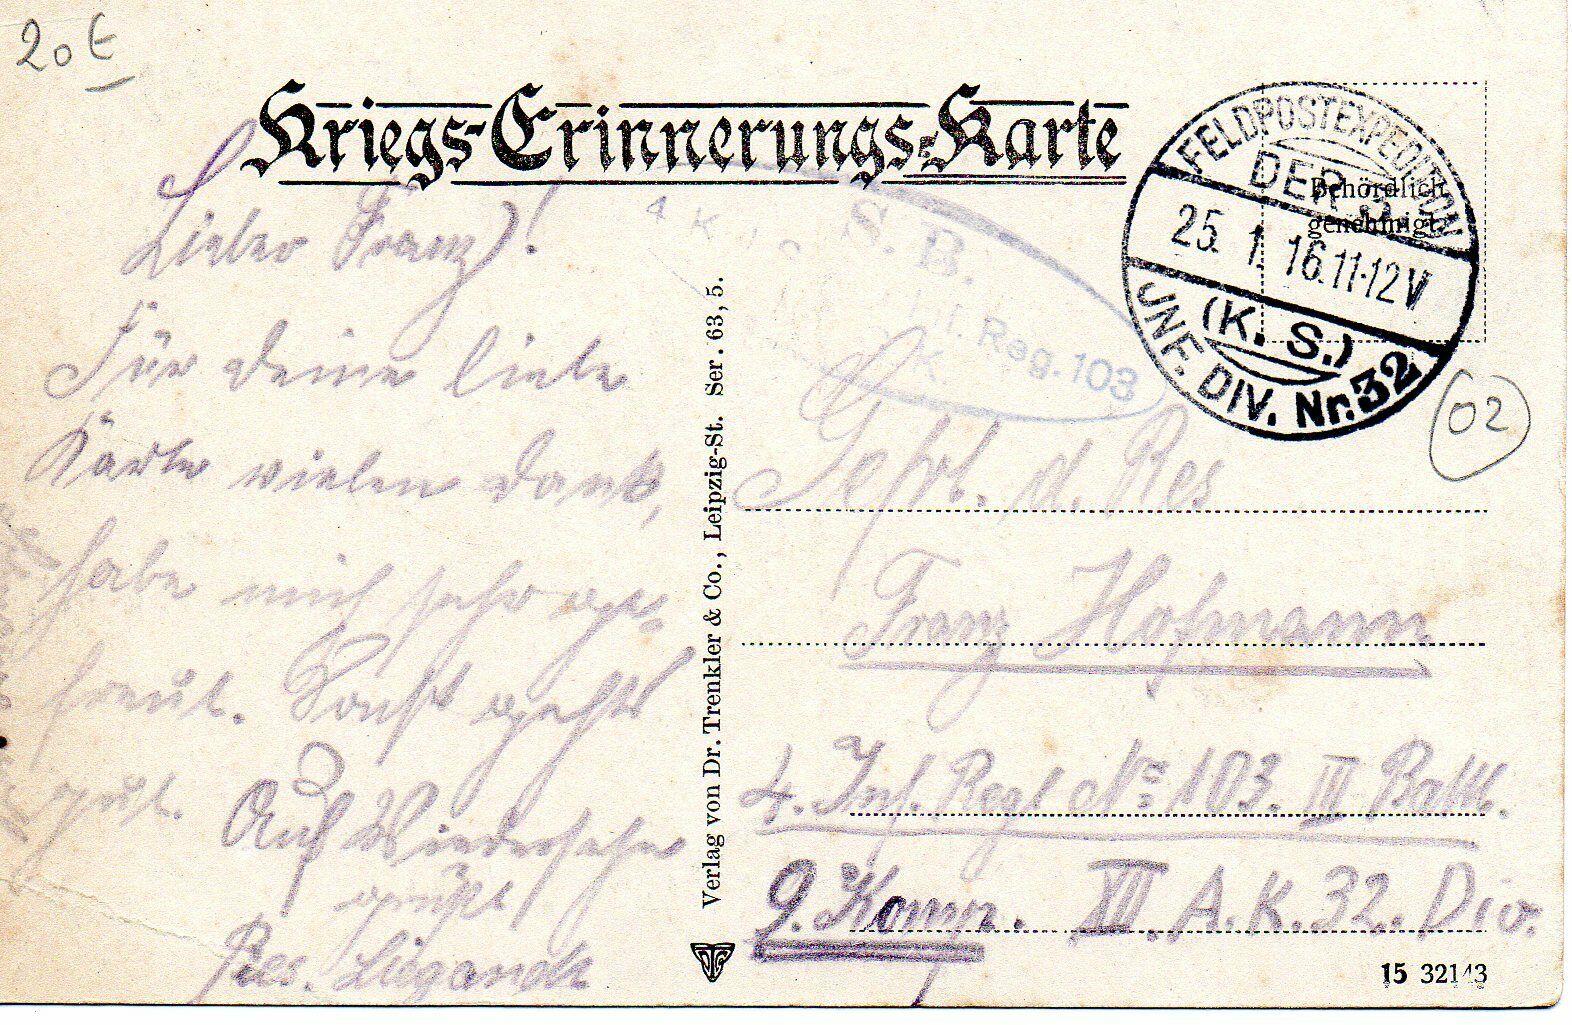 20 €
Kriegs-Erinnerungs-Karte
FELDPOSTEXPEDITION
DER 3.
25. 1. 16. 11-12 V
(K. S.)
INF. DIV. Nr. 32
Behördlich
genehmigt
4 K
S. B.
Reg. 103
02
Lieber Franz!
Für deine liebe
Karte vielen Dank,
habe mich sehr ge=
freut. Sonst gehts
gut.
Auf Wiedersehn
grüßt
Res.
Verlag von Dr. Trenkler & Co., Leipzig-St. Ser. 63, 5.
Gefrt. d. Res
Franz Hofmann
4. Inf. Regt No 103. III Batl.
9. Komp. XII. A. K. 32. Div.
15 32143